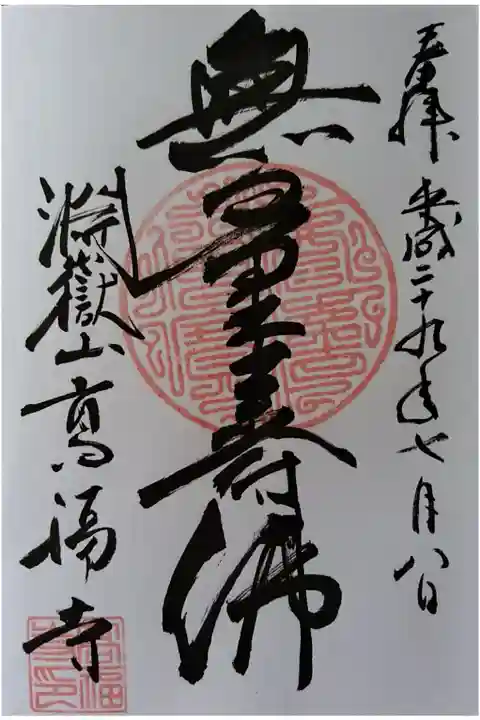 奉拝 平成二十九年七月八日
無量寿佛
渕嶽山高福寺